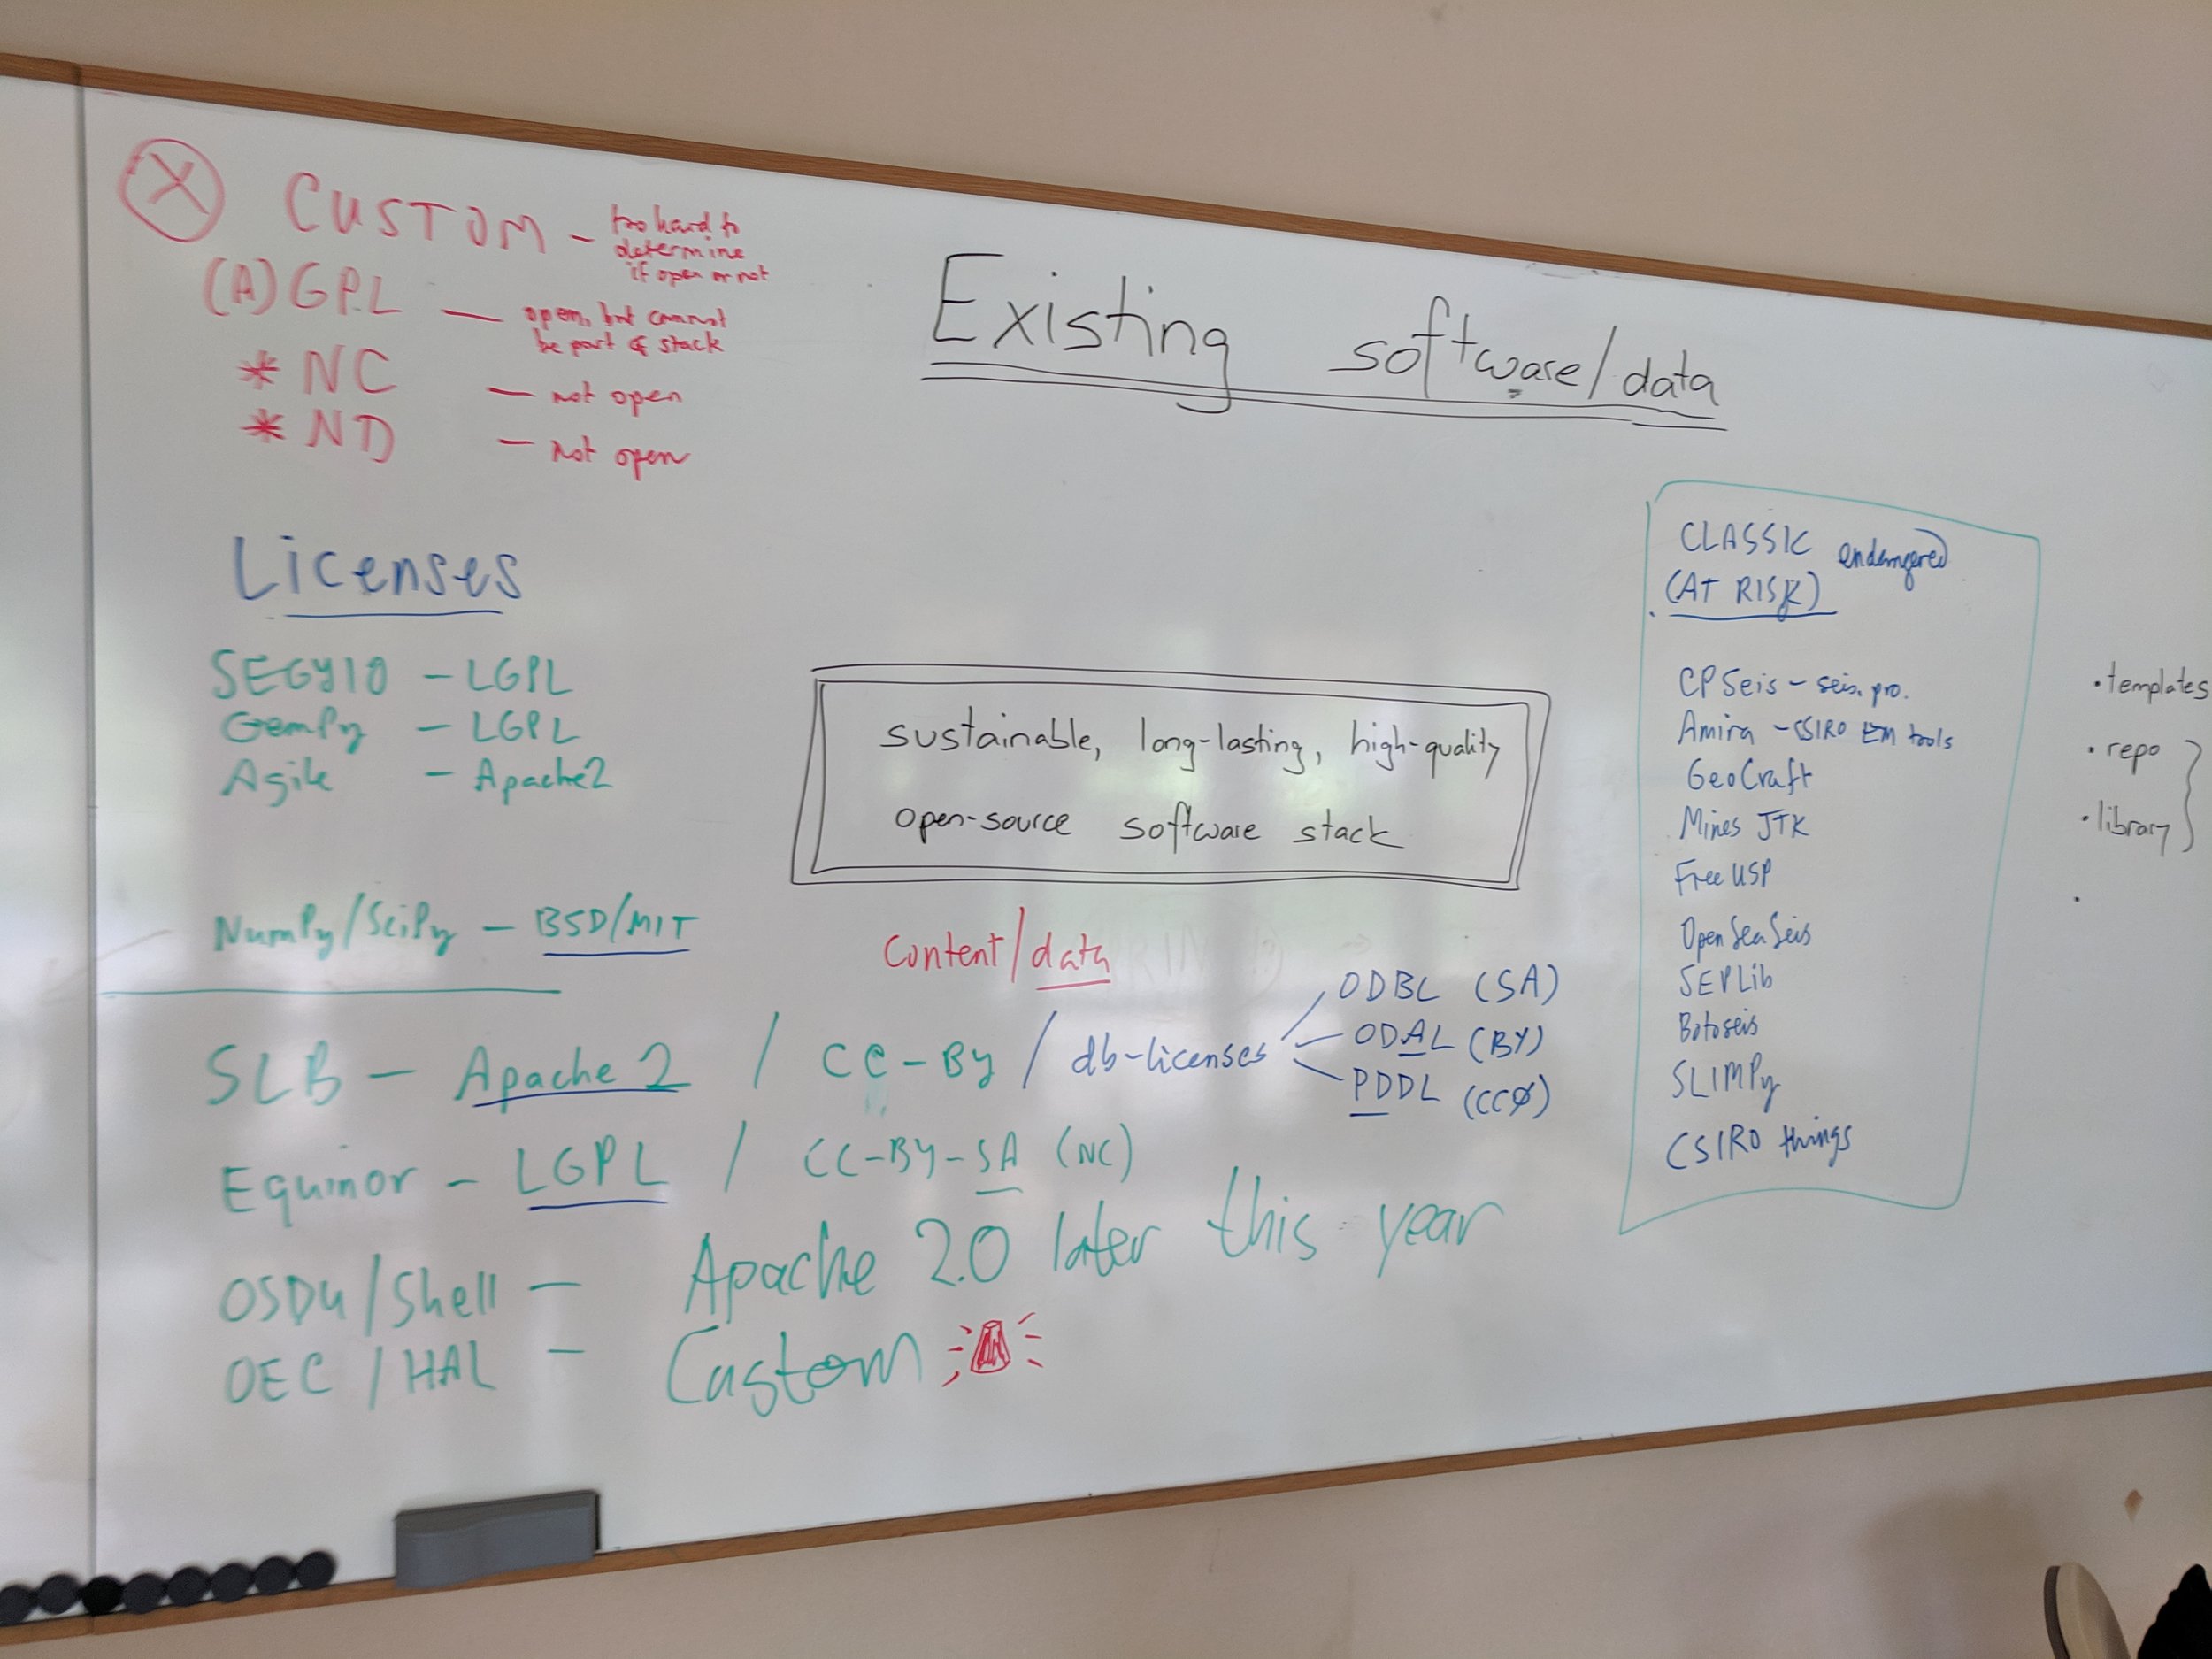 X CUSTOM - too hard to
determine
if open or not
(A)GPL — open, but cannot
be part of stack
* NC — not open
* ND — not open
Existing software/data
Licenses
SEGYIO - LGPL
GemPy - LGPL
Agile - Apache2
NumPy/SciPy - BSD/MIT
sustainable, long-lasting, high-quality
open-source software stack
Content/data
SLB - Apache 2 / CC-By / db-licenses
ODBL (SA)
ODAL (BY)
PDDL (CC0)
Equinor - LGPL / CC-BY-SA (NC)
OSDU/Shell - Apache 2.0 later this year
OEC/HAL - Custom
CLASSIC endangered
(AT RISK)
CPSeis - seis. pro.
Amira - CSIRO EM tools
GeoCraft
Mines JTK
Free USP
OpenSeaSeis
SEPLib
Botoseis
SLIMPy
CSIRO things
• templates
• repo
• library